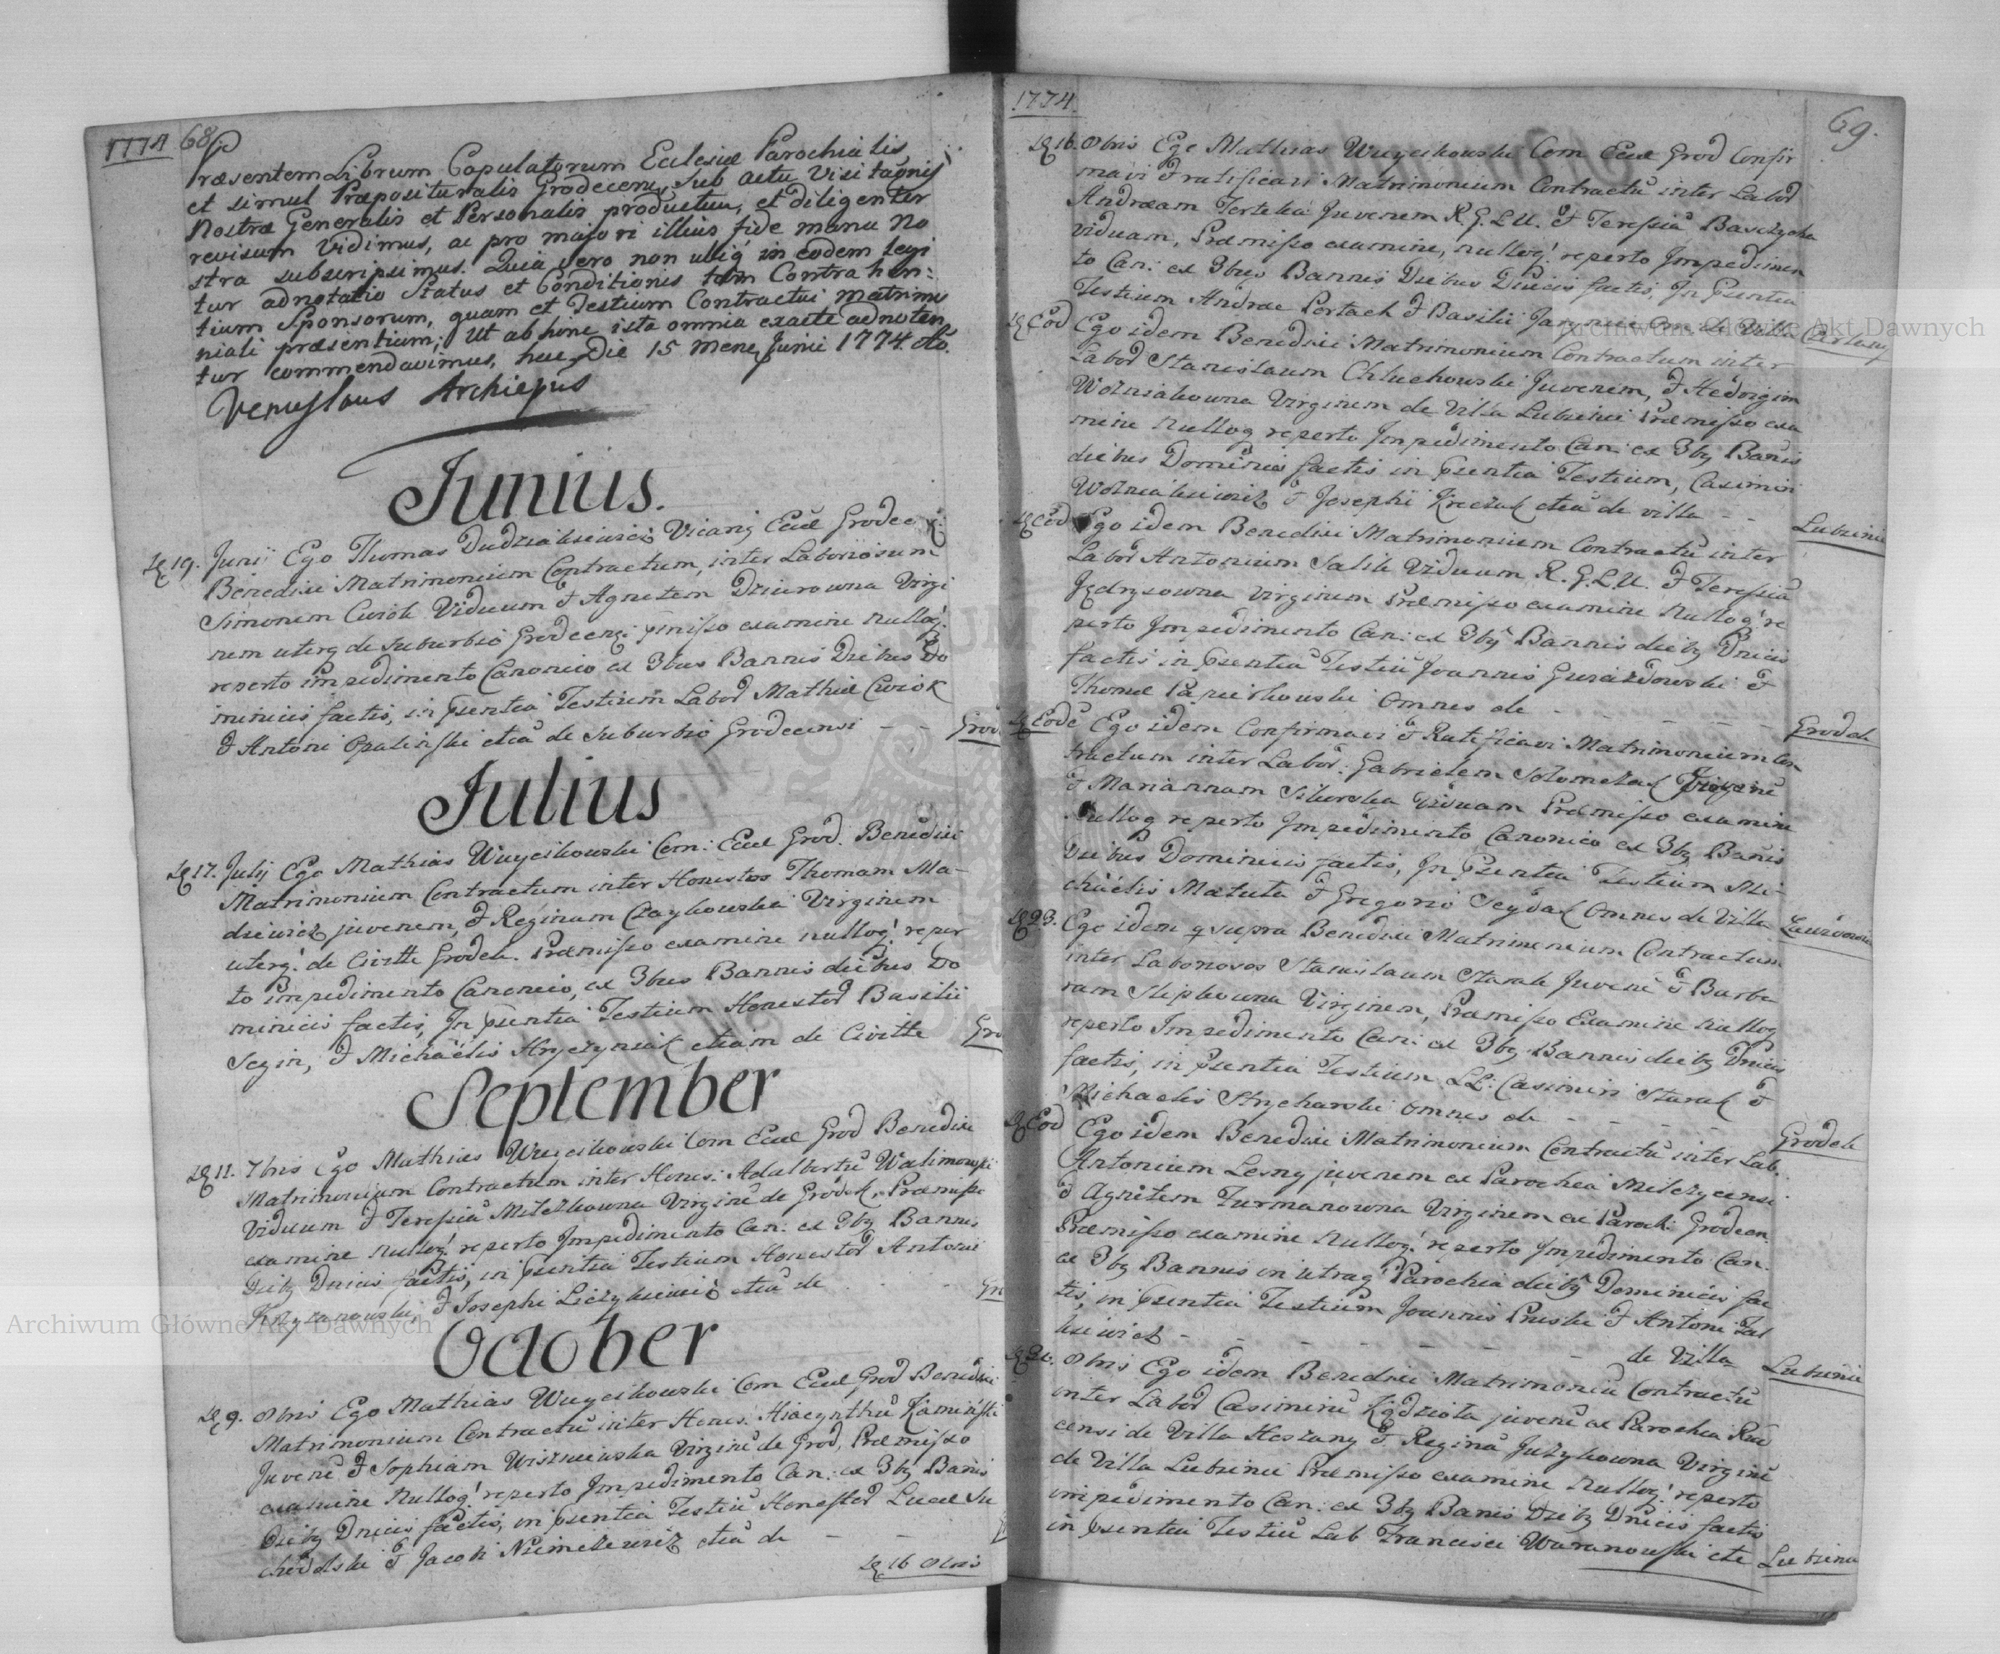 1774 68
Præsentem Librum Copulatorum Ecclesiæ Parochialis
et simul Præpositurælis Grodecens, sub actu Visitaonis
Nostræ Generalis et Personalis productum, et diligenter
revisum vidimus, ac pro majori illius fide manu No
stra subscripsimus. Quia vero non ubiq in eodem legi
tur adnotatio Status et Conditionis tam Contrahen:
tium Sponsorum, quam et Testium Contractui matrimo
niali præsentium; Ut ab hinc ista omnia exacte adnoten
tur commendavimus, hac Die 15 Mens Junii 1774
Archieppus
Junius.
19. Junii Ego Thomas Dudziakiewicz Vicarij Eccl Grodec
Benedixi Matrimonium Contractum, inter Laboriosum
Simonem Cwiok Viduum & Agnetem Dziurowna Virgi
nem uterq de suburbio Grodecens: pmisso examine nulloq.
reperto impedimento Canonico ex 3bus Bannis Diebus Do
minicis factis, in Psentia Testium Labor Mathiæ Cwiok
& Antoni Opalinski etiã de Suburbio Grodecensi - - Grod
Julius
17. Julij Ego Mathias Wuycikowski Com: Eccl Grod. Benedixi
Matrimonium Contractum inter Honestos Thomam Ma-
dziewicz juvenem, & Reginam Czaykowska Virginem
uterq. de Civitte Grodek. Præmisso examine nulloq. reper
to impedimento Canonico, ex 3bus Bannis diebus Do
minicis factis, In Psentia Testium Honestor Basilii
Segin, & Michaelis Hryczyniak etiam de Civitte Gro
September
11. 7bris Ego Mathias Wuycikowski Com Eccl Grod Benedixi
Matrimonium Contractum inter Hones: Adalbertũ Walimowski
Viduum & Teressiã Mileszkowna Virginẽ de Grodek, Præmisso
examine nulloq reperto Impedimento Can: ex 3bq Bannis
Diebq Dnicis factis, in Psentia Testium Honestor Antonii
Krzyzanowski, & Josephi Liczykiewicz etiã de - - Gro
October
9. 8bris Ego Mathias Wuycikowski Com Eccl Grod Benedixi
Matrimonium Contractũ inter Hones: Hiacynthũ Kaminski
Juvenẽ & Sophiam Wiszniewska Virginẽ de Grod, Præmisso
examine Nulloq. reperto Impedimento Can: ex 3bq Banis
Diebq Dnicis factis, in Psentia Testiũ Honestor Lucæ Su
chodolski & Jacobi Niemczewicz etiã de - -
16 8bris
1774
69.
16. 8bris Ego Mathias Wuycikowski Com Eccl Grod Confir
mavi & ratificavi Matrimonium Contractũ inter Labor
Andream Terteka Juvenem R. G. L. U. & Teressiã Baszczycha
viduam, Præmisso examine, nulloq. reperto Impedimen
to Can: ex 3bus Bannis Diebus Dnicis factis, In Psentia
Testium Andreæ Portach & Basilii
Eod Ego idem Benedixi Matrimonium Contractum inter
Labor Stanislaum Chluchowski Juvenem, & Hedvigim
Wozniakowna Virginem de Villa Lubzinie Præmisso exa
mine Nulloq reperto Impedimento Can: ex 3bq Banis
diebus Dominicis factis in Psentia Testium, Casimiri
Wozniakiewicz & Josephi Kreczak etiã de villa - - Lubzinie
Eod Ego idem Benedixi Matrimonium Contractũ inter
Labor Antonium Salik Viduum R. G. L. U. & Teressiã
Jędrysowna Virginem Præmisso examine Nulloq re
perto Impedimento Can: ex 3bq Bannis diebq Dnicis
factis in Psentia Testiũ Joannis Gwiazdowski &
Thomæ Papierkowski Omnes de - - - - Grodek
Eodẽ Ego idem Confirmavi & Ratificavi Matrimonium Con
tractum inter Labor: Gabrielem Solomczak
& Mariannam Sikorska Viduam Præmisso examine
Nulloq reperto Impedimento Canonico ex 3bq Banis
Diebus Dominicis factis, In Psentia Testium Mi
chaelis Matuta & Gregorio Seydak Omnes de Villa
23. Ego idem q supra Benedixi Matrimonium Contractum
inter Laboriosos Stanislaum Starak Juvenẽ & Barba
ram Slipkowna Virginem, Præmisso Examine Nulloq
reperto Impedimento Can: ex 3bq Bannis diebq Dnicis
factis, in Psentia Testium LL: Casimiri Starak &
Michaelis Strycharski Omnes de - - - - Grodek
Eod Ego idem Benedixi Matrimonium Contractũ inter Lab.
Antonium Lesny juvenem ex Parochia Milczycensi
& Agnetem Furmanowna Virginem ex Paroch Grodecen.
Præmisso examine Nulloq. reperto Impedimento Can.
ex 3bq Bannis in utraq Parochia diebq Dominicis fac
tis, in Psentia Testium Joannis Pruski & Antoni Zal
kiewicz - - - - de Villa Lubzinie
8bris Ego idem Benedixi Matrimoniũ Contractũ
inter Labor Casimirũ Kędziota juvenẽ ex Parochia Rud
censi de Villa Hoszany & Reginã Juzykowna Virginẽ
de Villa Lubzinie Præmisso examine Nulloq. reperto
impedimento Can: ex 3bq Banis Diebq Dnicis factis
in Psentia Testiũ Lab Francisci Waranowski etc Lubzinie
Archiwum Główne Akt Dawnych
Archiwum Główne Akt Dawnych